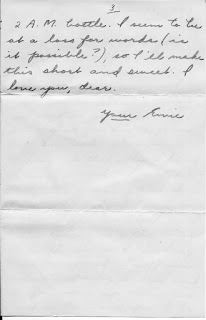 3
2 A.M. bottle. I seem to be
at a loss for words (is
it possible?), so I'll make
this short and sweet. I
love you, dear.
Your Ernie